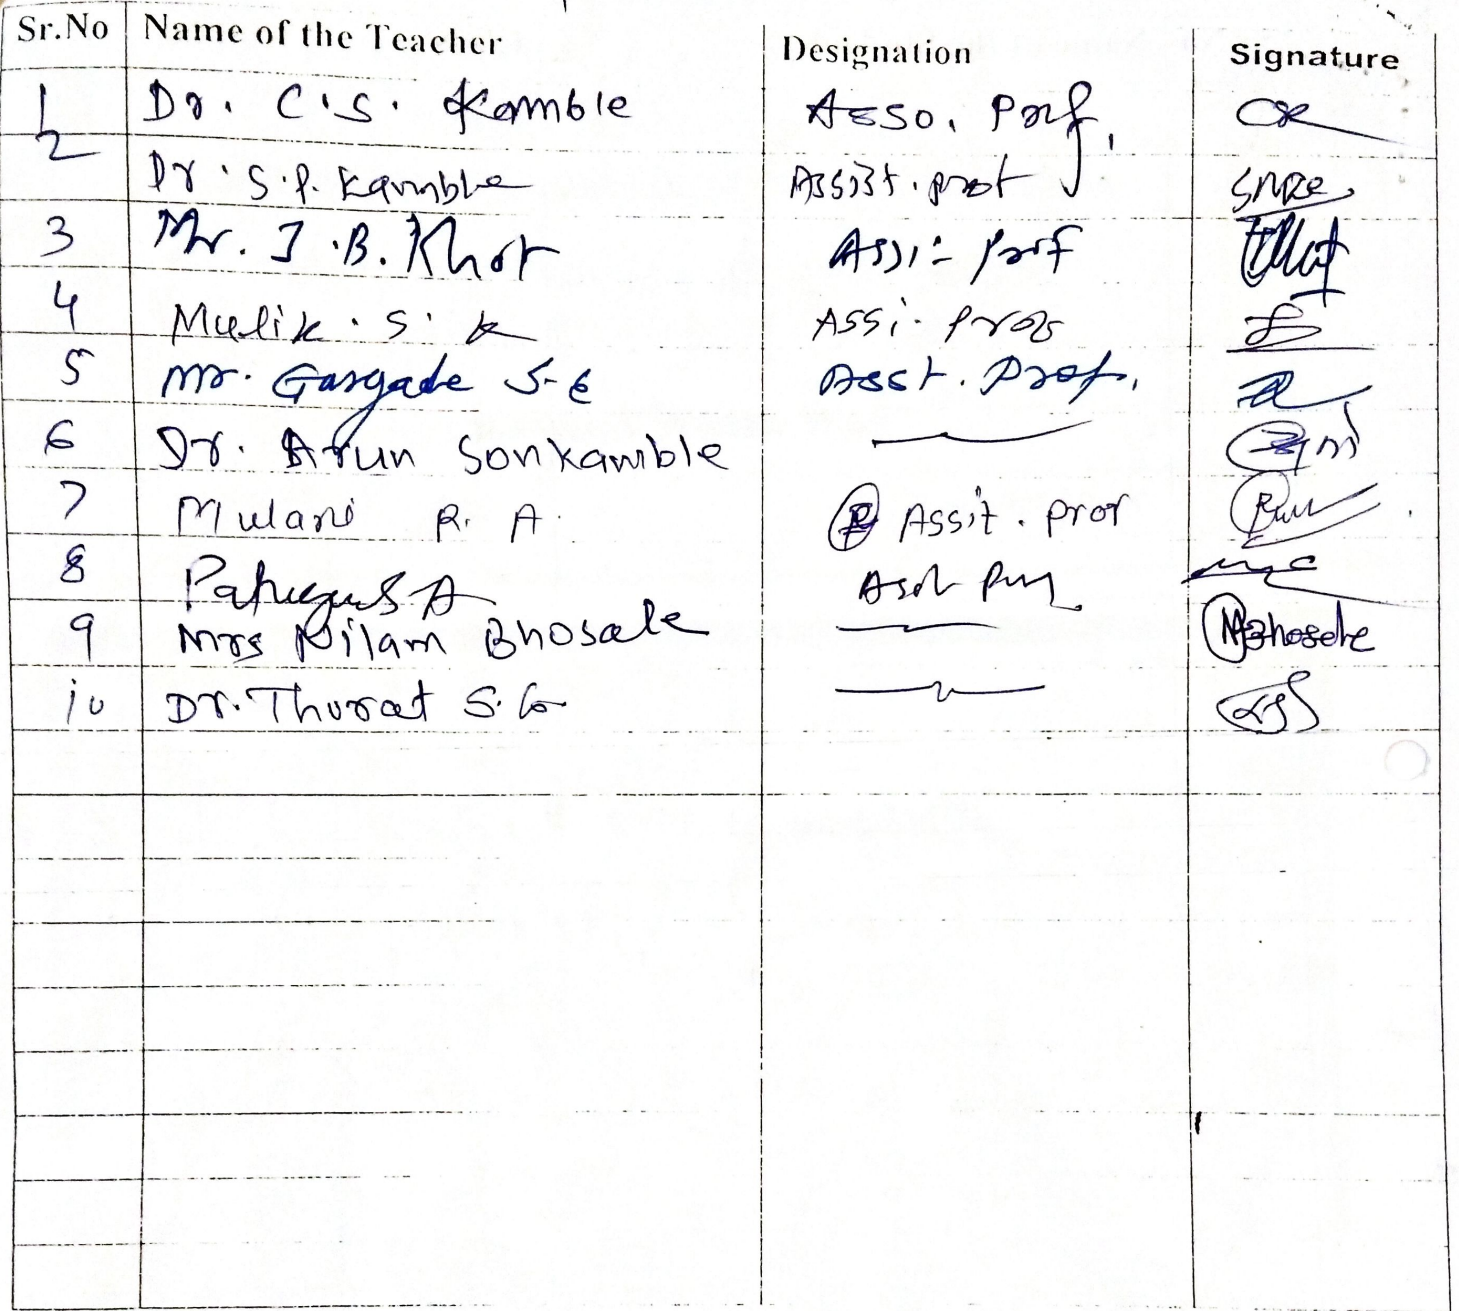 Sr.No Name of the Teacher Designation Signature
1 Dr. C.S. Kamble Asso. Prof.
2 Dr. S.P. Kamble Assist. prof
3 Mr. J.B. Khot Assi. Prof
4 Mulik. S. K Assi. Prof
5 Mr. Gargade S. E Asst. Prof.
6 Dr. Arun Sonkamble
7 Mulani R. A. Assit. prof
8 A
9 Mrs Nilam Bhosale Bhosale
10 Dr. Thorat S. G